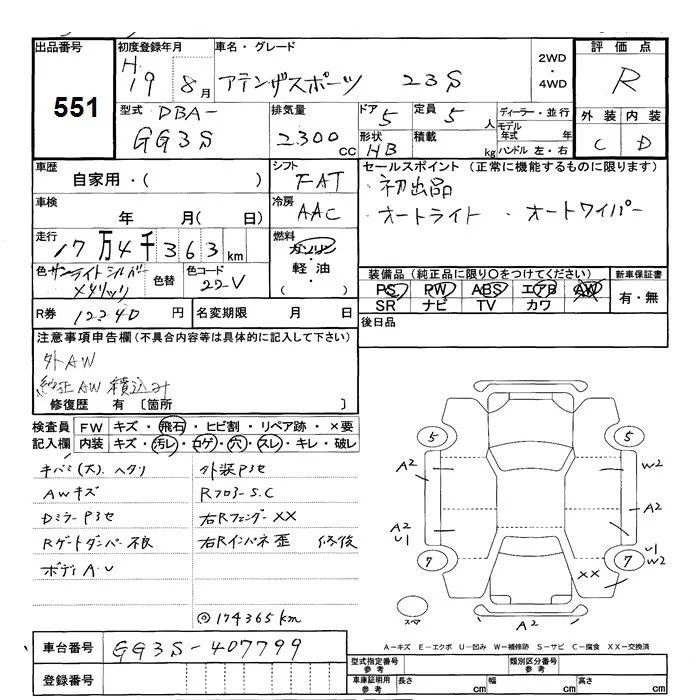 出品番号 初度登録年月 車名・グレード 2WD・4WD 評価点
551 H.19 8月 アテンザスポーツ 23S R
型式 DBA- GG3S 排気量 2300cc ドア 5 定員 5人 ディーラー・並行 外装 内装
形状 HB 積載 kg モデル年式 年 C D
ハンドル 左・右
車歴 シフト セールスポイント (正常に機能するものに限ります)
自家用・( ) FAT ・初出品
車検 冷房 ・オートライト ・オートワイパー
年 月( 日) AAC
走行 燃料
17万4千363km ガソリン
軽油
・( )
色 サンライトシルバーメタリック 色替 色コード 22V
装備品 (純正品に限り○をつけてください) 新車保証書
PS PW ABS エアB AW 有・無
SR ナビ TV カワ
R券 12240円 名変期限 月 日
後日品
注意事項申告欄(不具合内容等は具体的に記入して下さい)
外AW
純正AW 積込み
修復歴 有〔箇所 〕
検査員 FW キズ・飛石・ヒビ割・リペア跡・×要
記入欄 内装 キズ・汚レ・コゲ・穴・スレ・キレ・破レ
キバミ(大).ヘタリ 外装Pヨセ
AWキズ Rフロアー S.C
DミラーPヨセ 右Rフェンダー XX
Rゲートダンパー不良 右Rインパネ歪 修後
ボディA.U
◎174365km
5 5
A2 W2
A2
A2
U1 U1
W2
7 7
XX
スペア
A2
A－キズ E－エクボ U－凹み W－補修跡 S－サビ C－腐食 XX－交換済
車台番号 GG3S-407799
登録番号
型式指定番号 参考 類別区分番号 参考
車庫証明用 参考 長さ cm 幅 cm 高さ cm